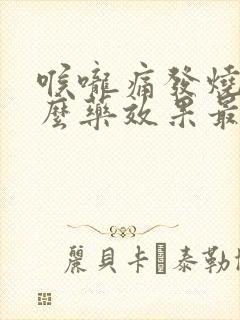 喉嚨痛發燒
麼藥效果最
麗貝卡 泰勒